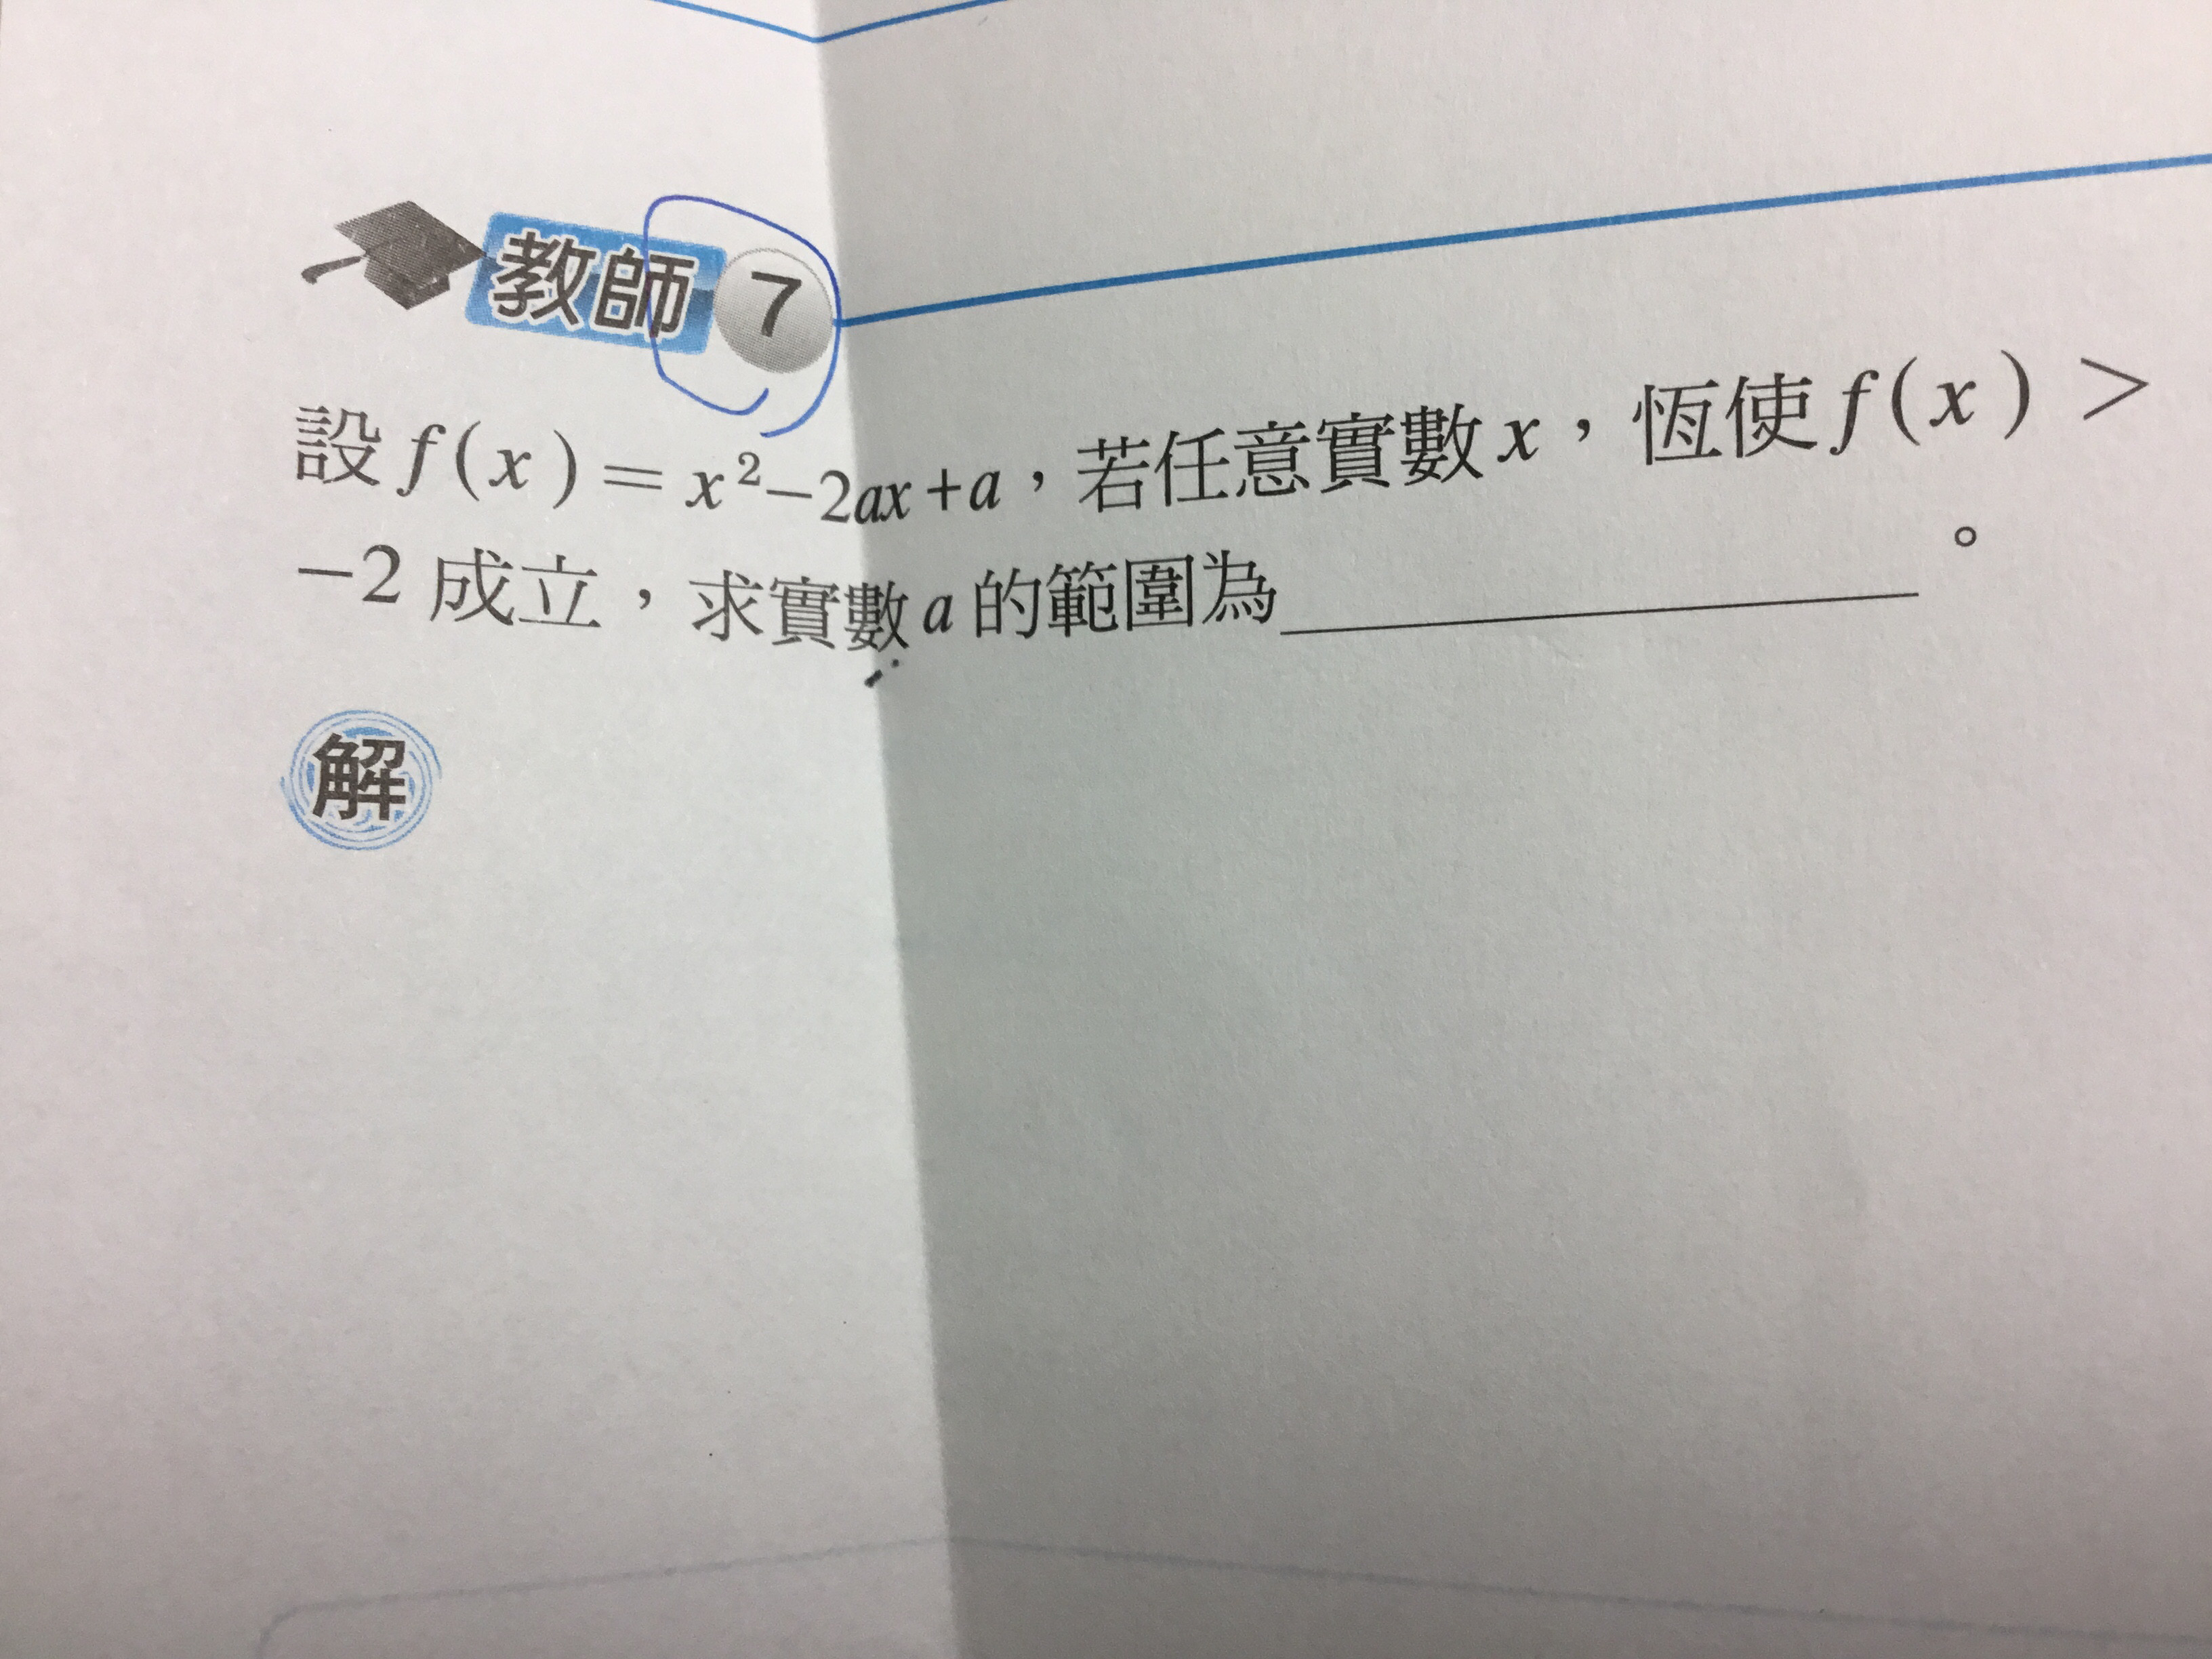 教師 7
設 f(x)=x²-2ax+a，若任意實數 x，恆使 f(x) >
-2 成立，求實數 a 的範圍為__________。
解